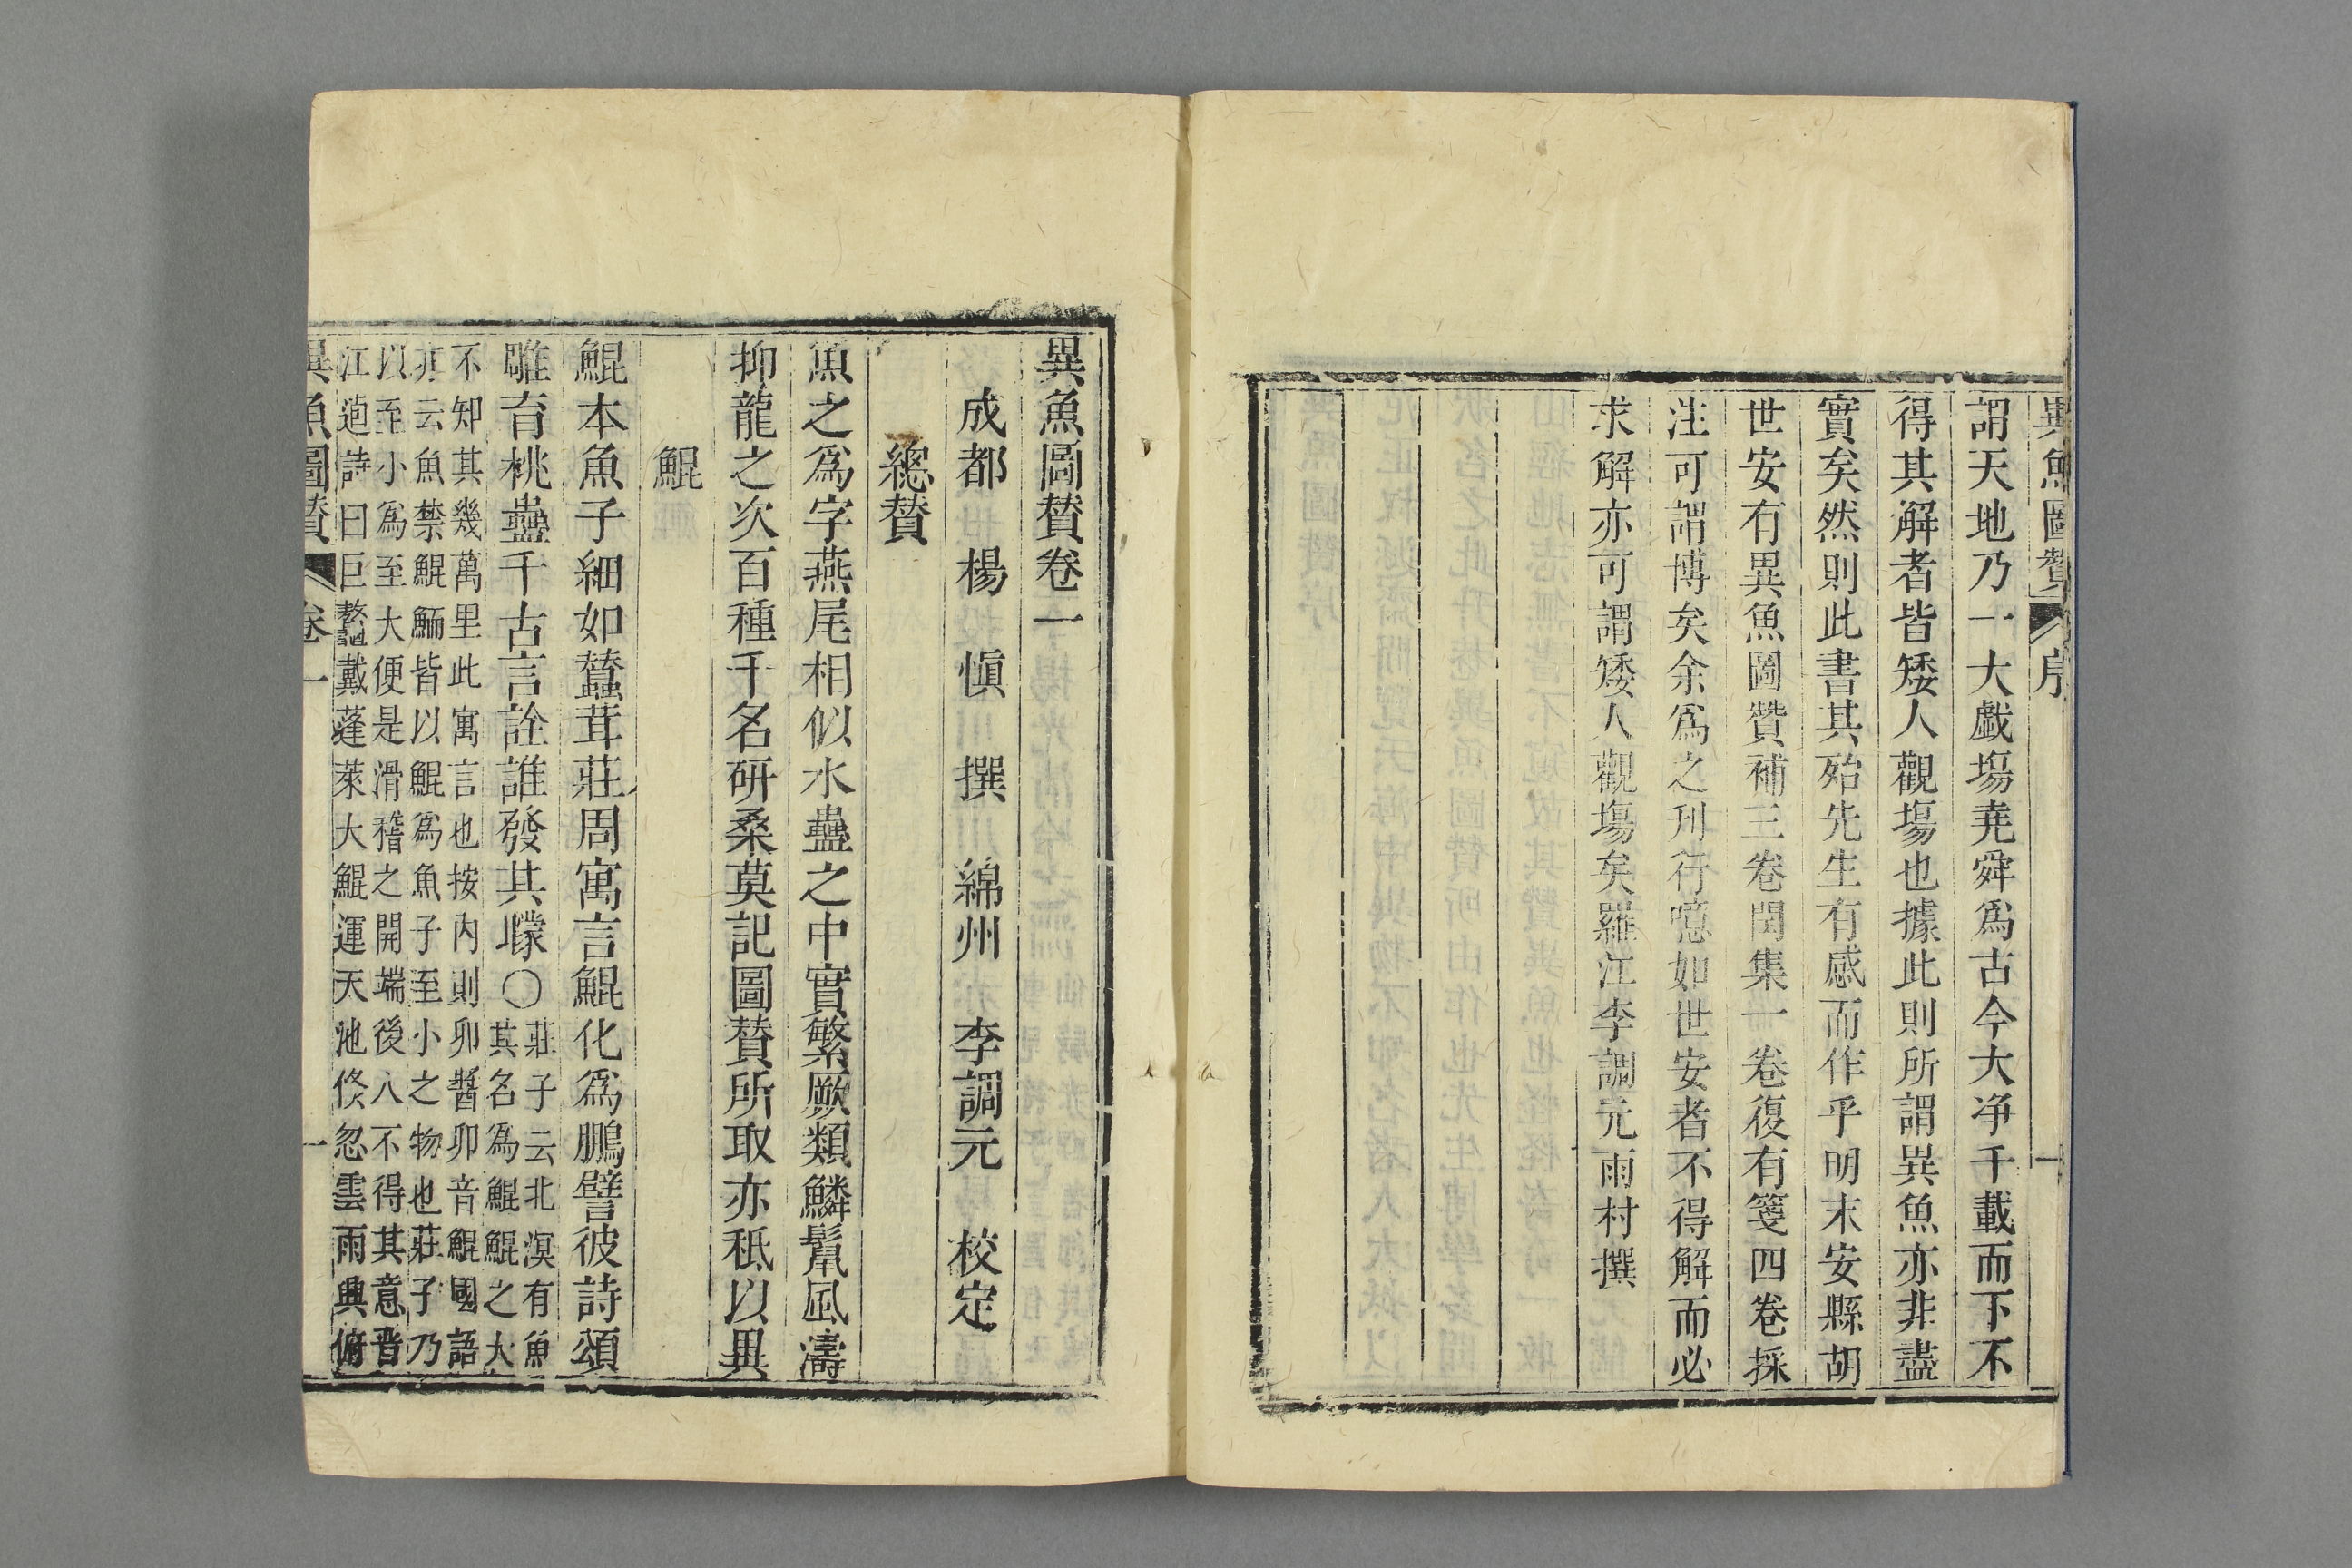 異魚圖贊 序 一
謂天地乃一大戯塲堯舜爲古今大净千載而下不
得其解者皆矮人觀塲也據此則所謂異魚亦非盡
實矣然則此書其殆先生有感而作乎明末安縣胡
世安有異魚圖贊補三卷閏集一卷復有箋四卷採
注可謂博矣余爲之刋行噫如世安者不得解而必
求解亦可謂矮人觀塲矣羅江李調元雨村撰
異魚圖贊卷一
成都 楊 愼 撰 綿州 李調元 校定
總贊
魚之爲字燕尾相似水蟲之中實繁厥類鱗鬐凪濤
抑龍之次百種千名研桑莫記圖贊所取亦秪以異
鯤
鯤本魚子細如蠶茸莊周寓言鯤化爲鵬譬彼詩頌
雕育桃蟲千古言詮誰發其矇〇
莊子云北溟有魚
其名爲鯤鯤之大
不知其幾萬里此寓言也按内則卵醬卵音鯤國語
亦云魚禁鯤鮞皆以鯤爲魚子至小之物也莊子乃
以至小爲至大便是滑稽之開端後人不得其意晋
江逌詩曰巨鼇戴蓬萊大鯤運天池倐忽雲雨興俯
異魚圖贊 卷一 一